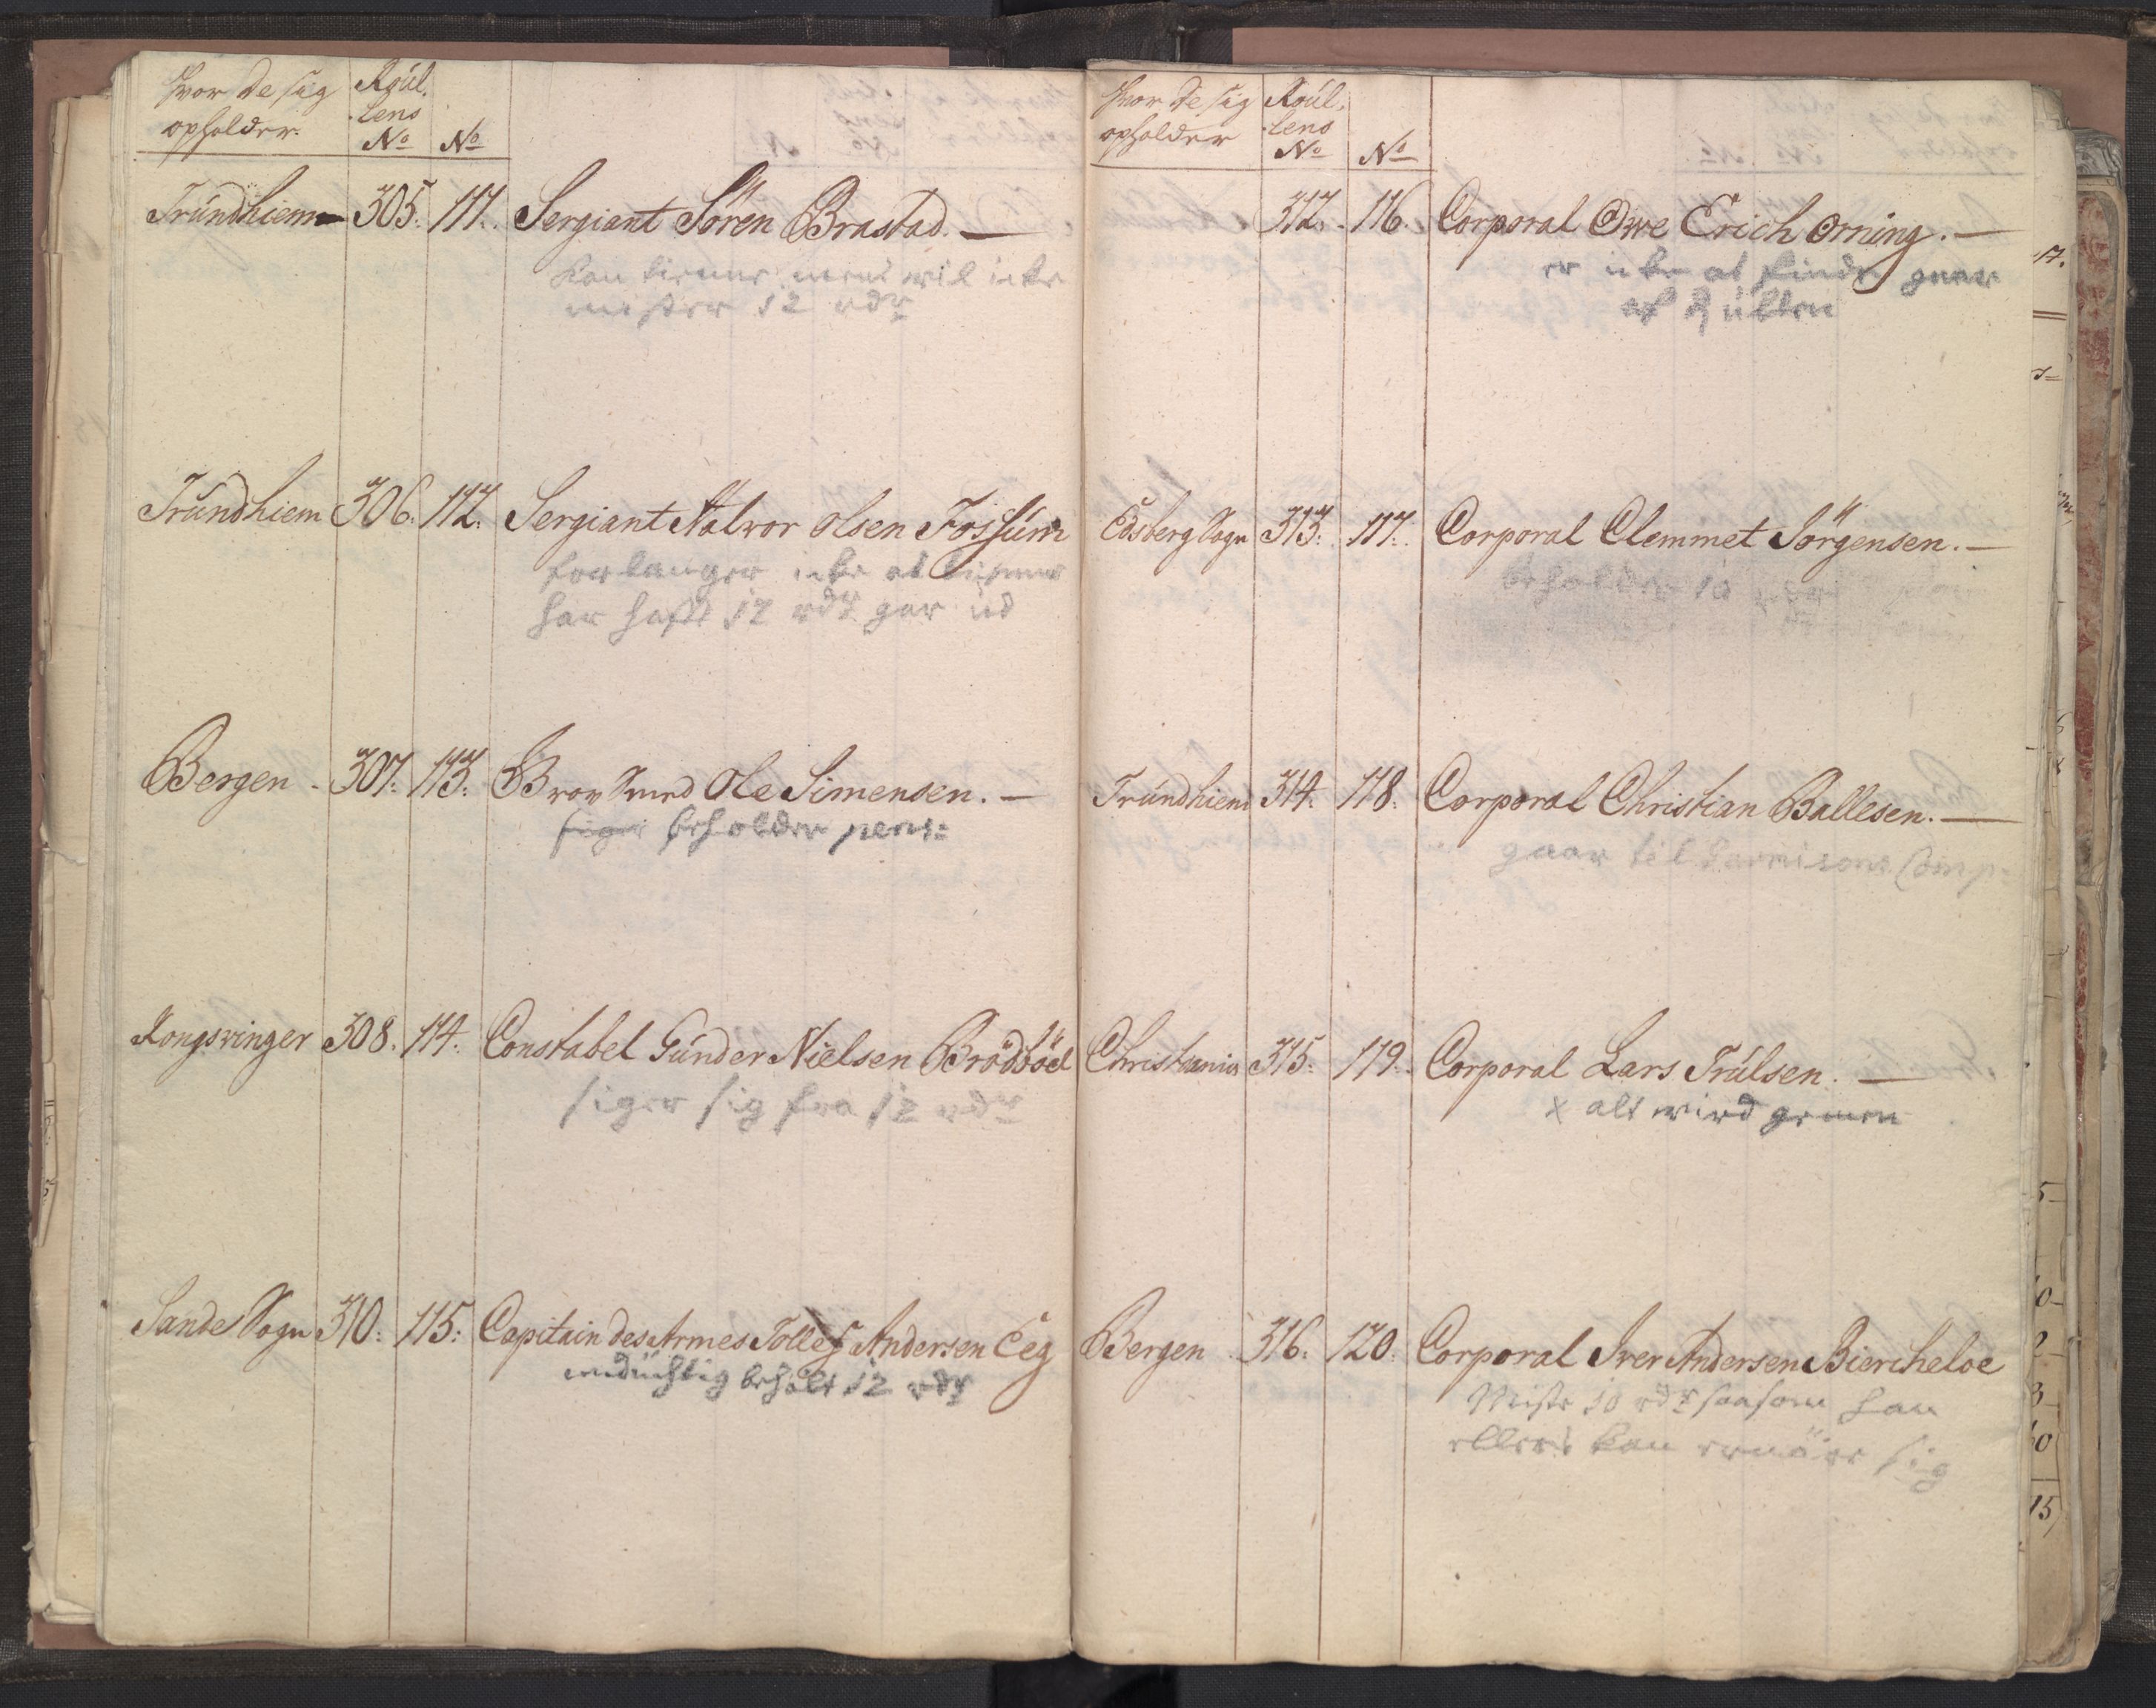 Hvor de sig Roúl.
opholder. lens
No No
Trúndhiem 305. 111. Sergiant Sören Brastad. —
kan tienne mens wil icke
mister 12 rdr
Trúndhiem 306. 112. Sergiant Halvor Olsen Fossúm
forlanger icke at tienne
har hafft 12 rdr gar úd
Bergen - 307. 113. Ole Simensen. —
beholder pens:
Kongswinger 308. 114. Constabel Gúnder Nielsen Brödböel
siger sig fra 12 rdr
Sande Sogn 310: 115: Capitain des Armes Tollef Andersen Eeg
údúchtig beholt 12 rdr
Hvor de sig Roúl.
opholder lens
No No
312. 116. Corporal Owe Erich Orning. —
er icke at finde gaar
af Rúllen
Edsberg Sogn 313: 117. Corporal Clemmet Jörgensen. —
beholder 10
Trúndhiem 314: 118: Corporal Christian Ballesen. —
gaar til Garnisons Comp:
Christiania 315: 119. Corporal Lars Trúlsen. —
x alt
Bergen 316. 120. Corporal Iver Andersen Biercheloe
Miste 10 rdr saasom han
ellers kan ernäre sig